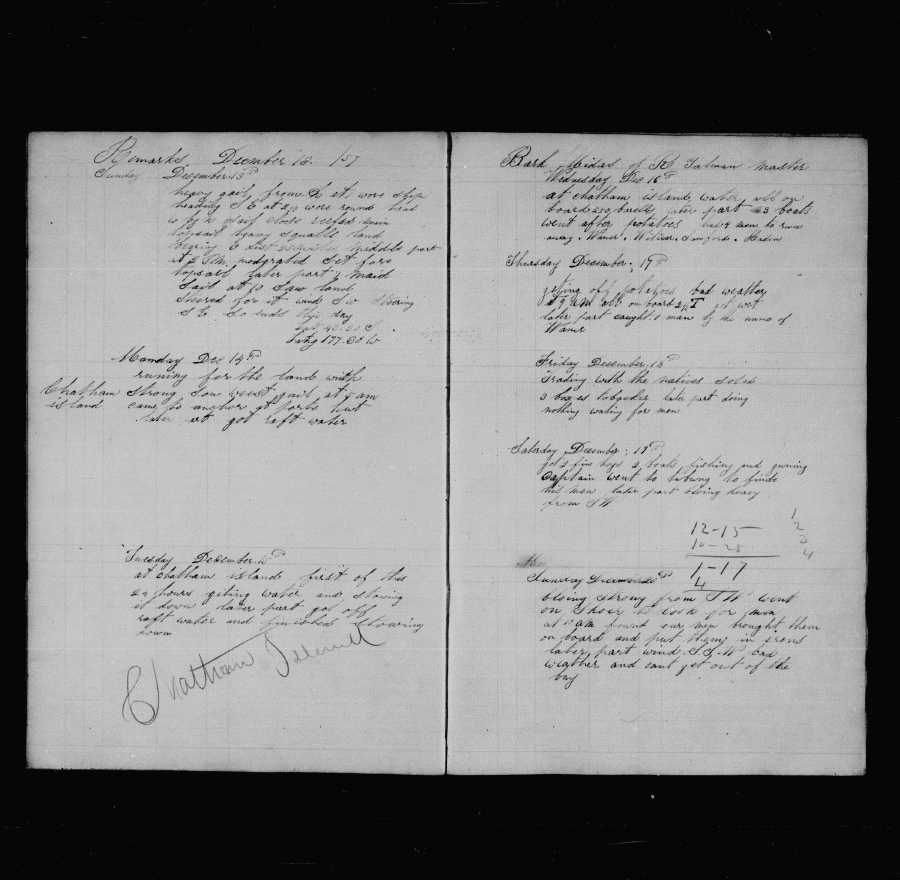 Remarks December 13. /57
Sunday December 13th
heavy gail from S et wore ship
heading S E at 2 wore round head
w by n sail close reefed main
topsail heavy squalls land
bearing E dist 25 miles middele part
at 2 P.M. modgrated set fore
topsail later part maid
sail at 10 saw land
steered for it wind S w steering
S E So ends this day
Lat 43.30 S
Long 177.30 W
Monday Dec 14th
runing for the land with
Chatham strong sou west gail at 7 am
island came to anchor at ports hut
later pt got raft water
Tuesday December 15th
at chatham island first of this
24 hours geting water and stowing
it down later part got off
raft water and finished stowing
down
Chatham Island
Bark Midas of N B Talman master
Wednesday Dec 16th
at chatham island water all on
board 250 barels later part 3 boats
went after potatoes had 4 men to run
away. Waner. Wilcox. Sanford.
Thursday December. 17th
geting off potatoes bad weather
at 9 am all on board got wet
later part caught 1 man by the name of
Waner
Friday December 18th
Trading with the natives solde
3 boxes tobacker later part doing
nothing wating for men
Saterday December; 19th
got 2 fine hogs 2 boats fishing and guning
Captain went to to finde
his men later part bloing heavy
from S W
12-15
10-28
1-17
4
1
2
3
4
Sunday December 20th
bloing strong from S W went
on shore to look for men
at 10 am found our men brought them
on board and put them in irons
later part wind. S.S.W bad
weather and cant get out of the
bay